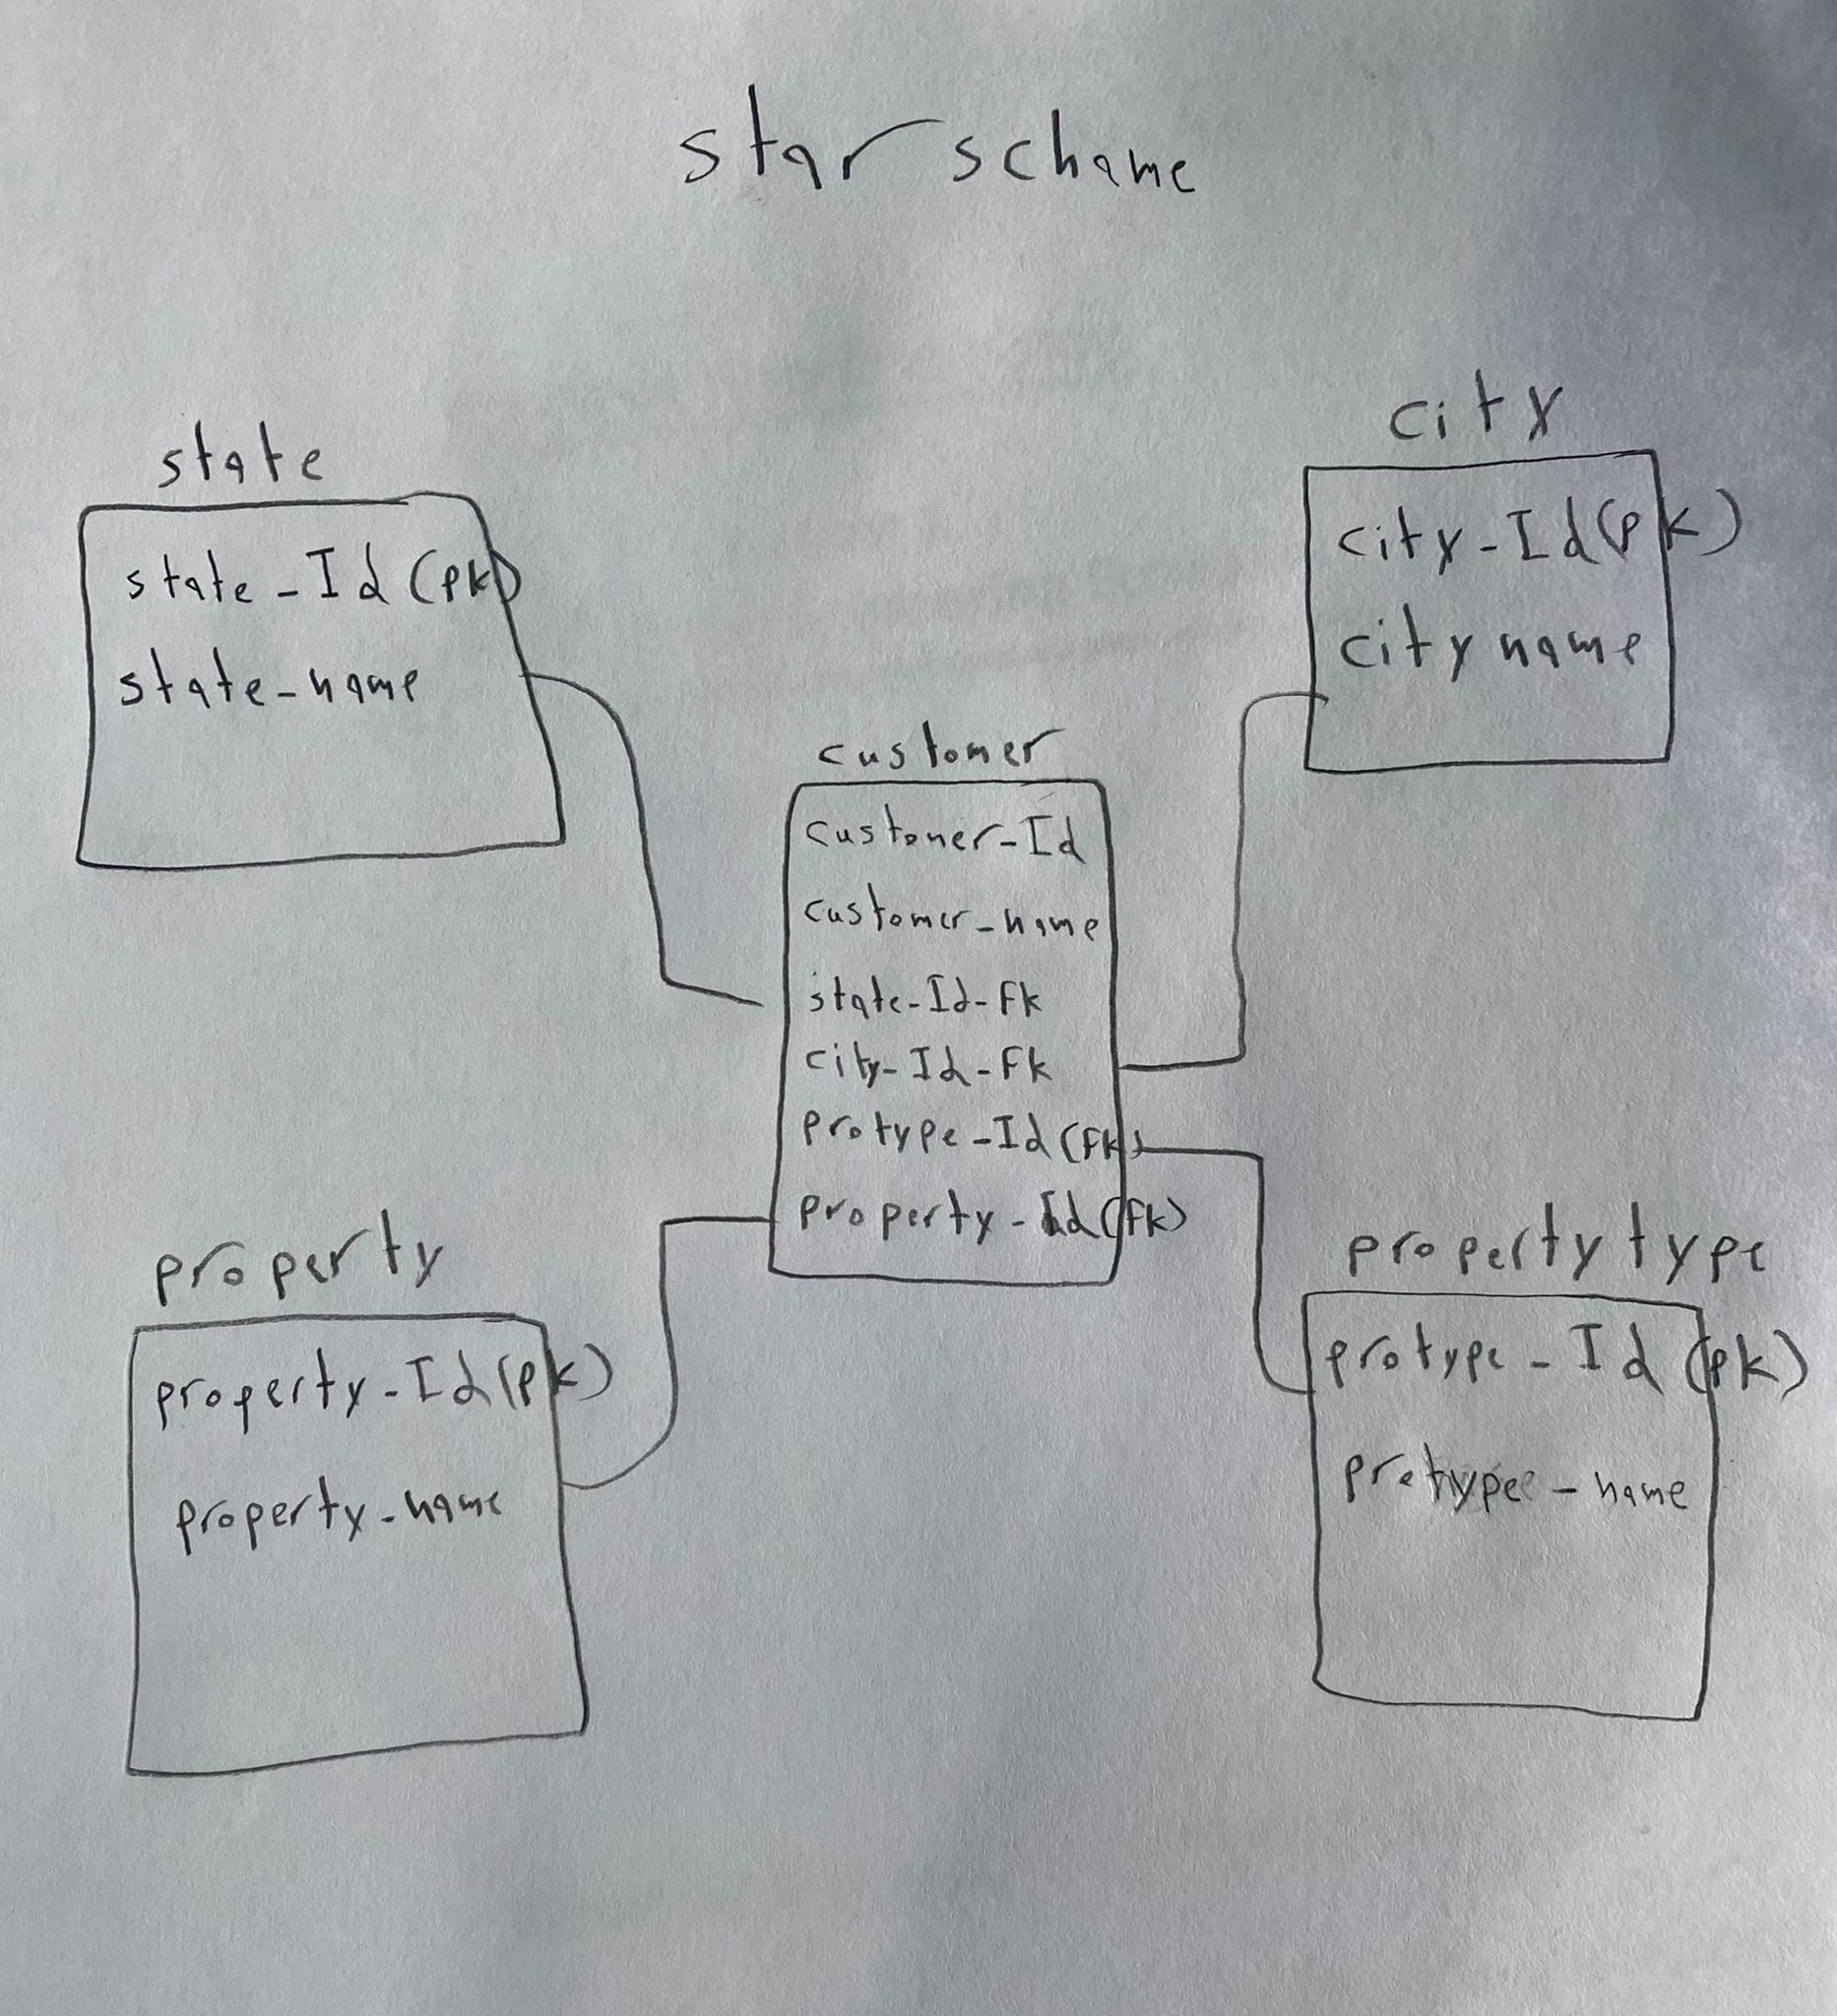 star schame
state
state-Id(pk)
state-name
city
city-Id(pk)
city name
customer
customer-Id
customer-name
state-Id-Fk
city-Id-Fk
protype-Id(Fk)
property-Id(fk)
property
property-Id(pk)
property-name
property type
protype-Id(pk)
protype-name